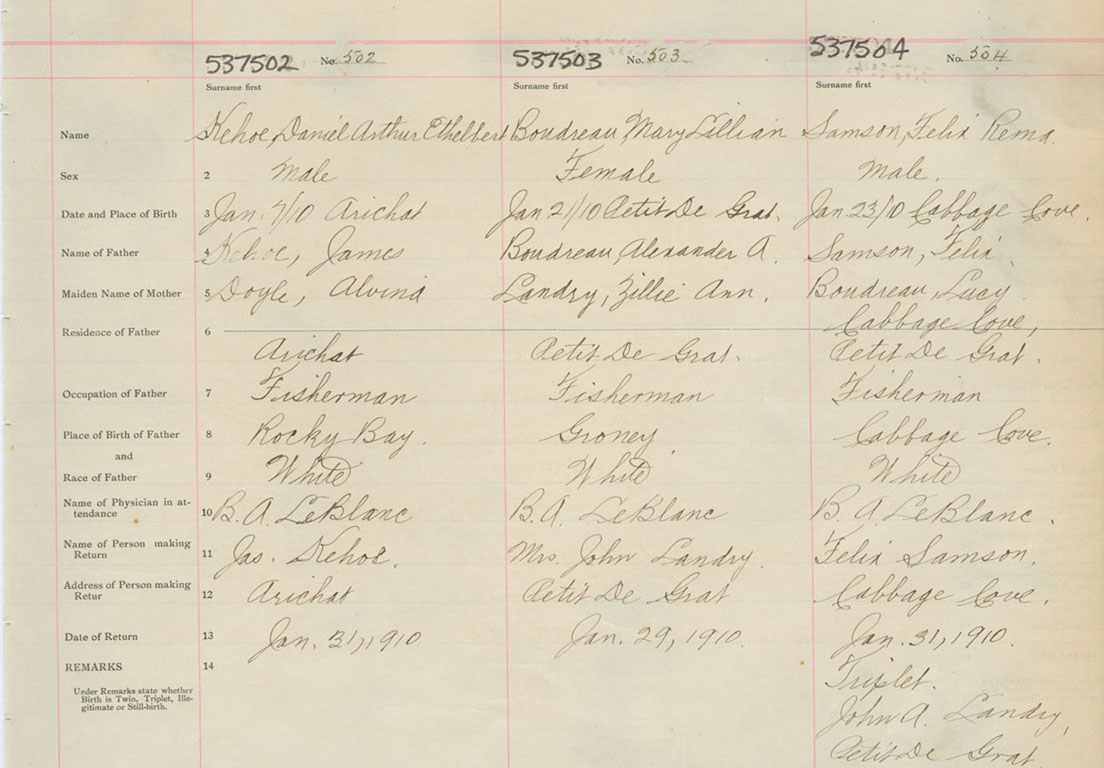 537502 No. 502 537503 No. 503 537504 No. 504
Surname first Surname first Surname first
Name Kehoe, Daniel Arthur Ethelbert Boudreau, Mary Lillian Samson, Felix Rema.
Sex 2 Male Female Male.
Date and Place of Birth 3 Jan. 7/10 Arichat Jan 21/10 Petit De Grat. Jan 23/10 Cabbage Cove.
Name of Father 4 Kehoe, James Boudreau, Alexander A. Samson, Felix.
Maiden Name of Mother 5 Doyle, Alvina Landry, Zillie Ann. Boudreau, Lucy
Cabbage Cove,
Residence of Father 6
Arichat Petit De Grat. Petit De Grat.
Occupation of Father 7 Fisherman Fisherman Fisherman
Place of Birth of Father 8 Rocky Bay. Groney Cabbage Cove.
and
Race of Father 9 White White White
Name of Physician in at-
tendance 10 B. A. LeBlanc B. A. LeBlanc B. A. LeBlanc.
Name of Person making
Return 11 Jas. Kehoe. Mrs. John Landry. Felix Samson.
Address of Person making
Retur 12 Arichat Petit De Grat Cabbage Cove.
Date of Return 13 Jan. 31, 1910 Jan. 29, 1910. Jan. 31, 1910.
REMARKS 14
Triplet.
Under Remarks state whether
Birth is Twin, Triplet, Ille-
gitimate or Still-birth.
John A. Landry,
Petit De Grat